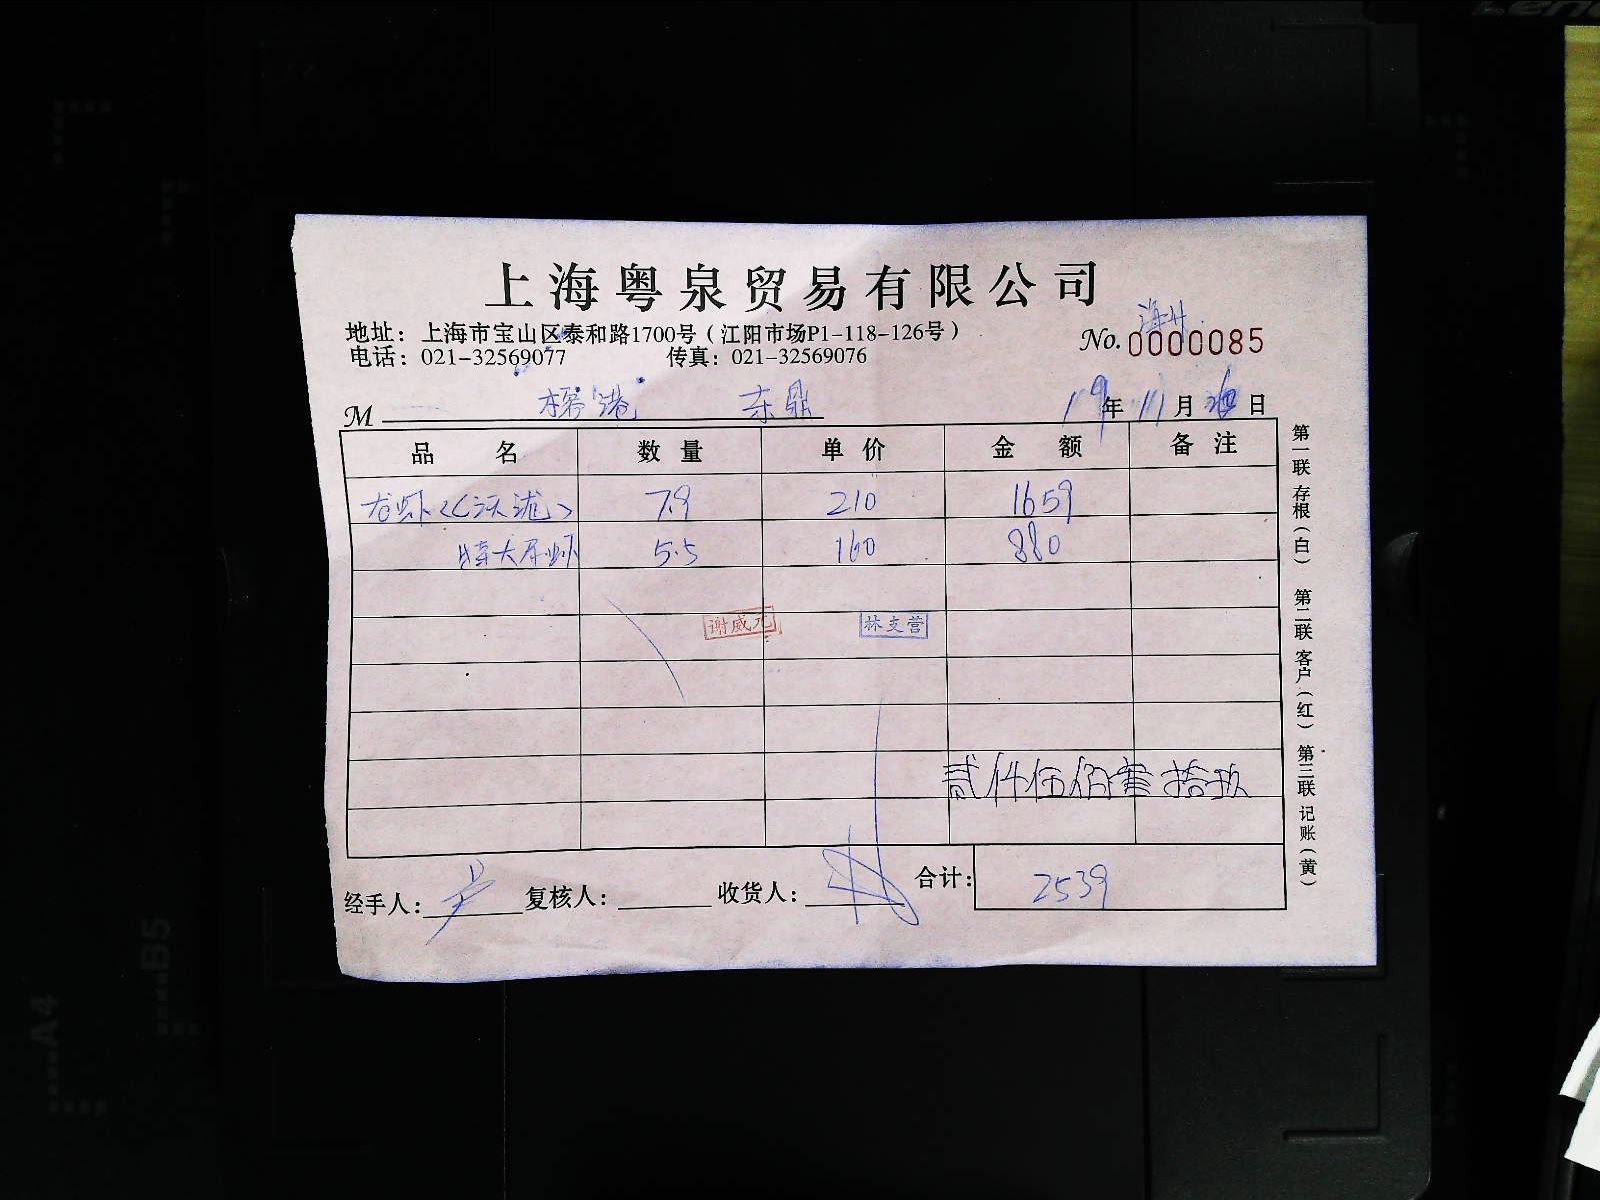 上海粤泉贸易有限公司
地址：上海市宝山区泰和路1700号（江阳市场P1-118-126号）
No.0000085
电话：021-32569077 传真：021-32569076
M 东鼎 19年11月 日
品名 数量 单价 金额 备注
龙虾 7.9 210 1659
特大 5.5 160 880
谢威 林支营
贰仟伍佰叁拾玖
经手人： 复核人： 收货人： 合计： 2539
第一联 存根（白） 第二联 客户（红） 第三联 记账（黄）
A4
B5